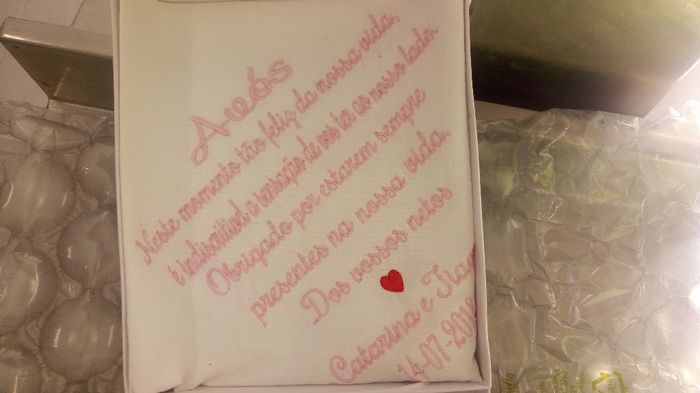 Avós
Neste momento tão feliz da nossa vida,
é indiscritível a sensação de vos ter ao nosso lado.
Obrigado por estarem sempre
presentes na nossa vida.
Dos vossos netos
Catarina e Tiago
14-07-2018